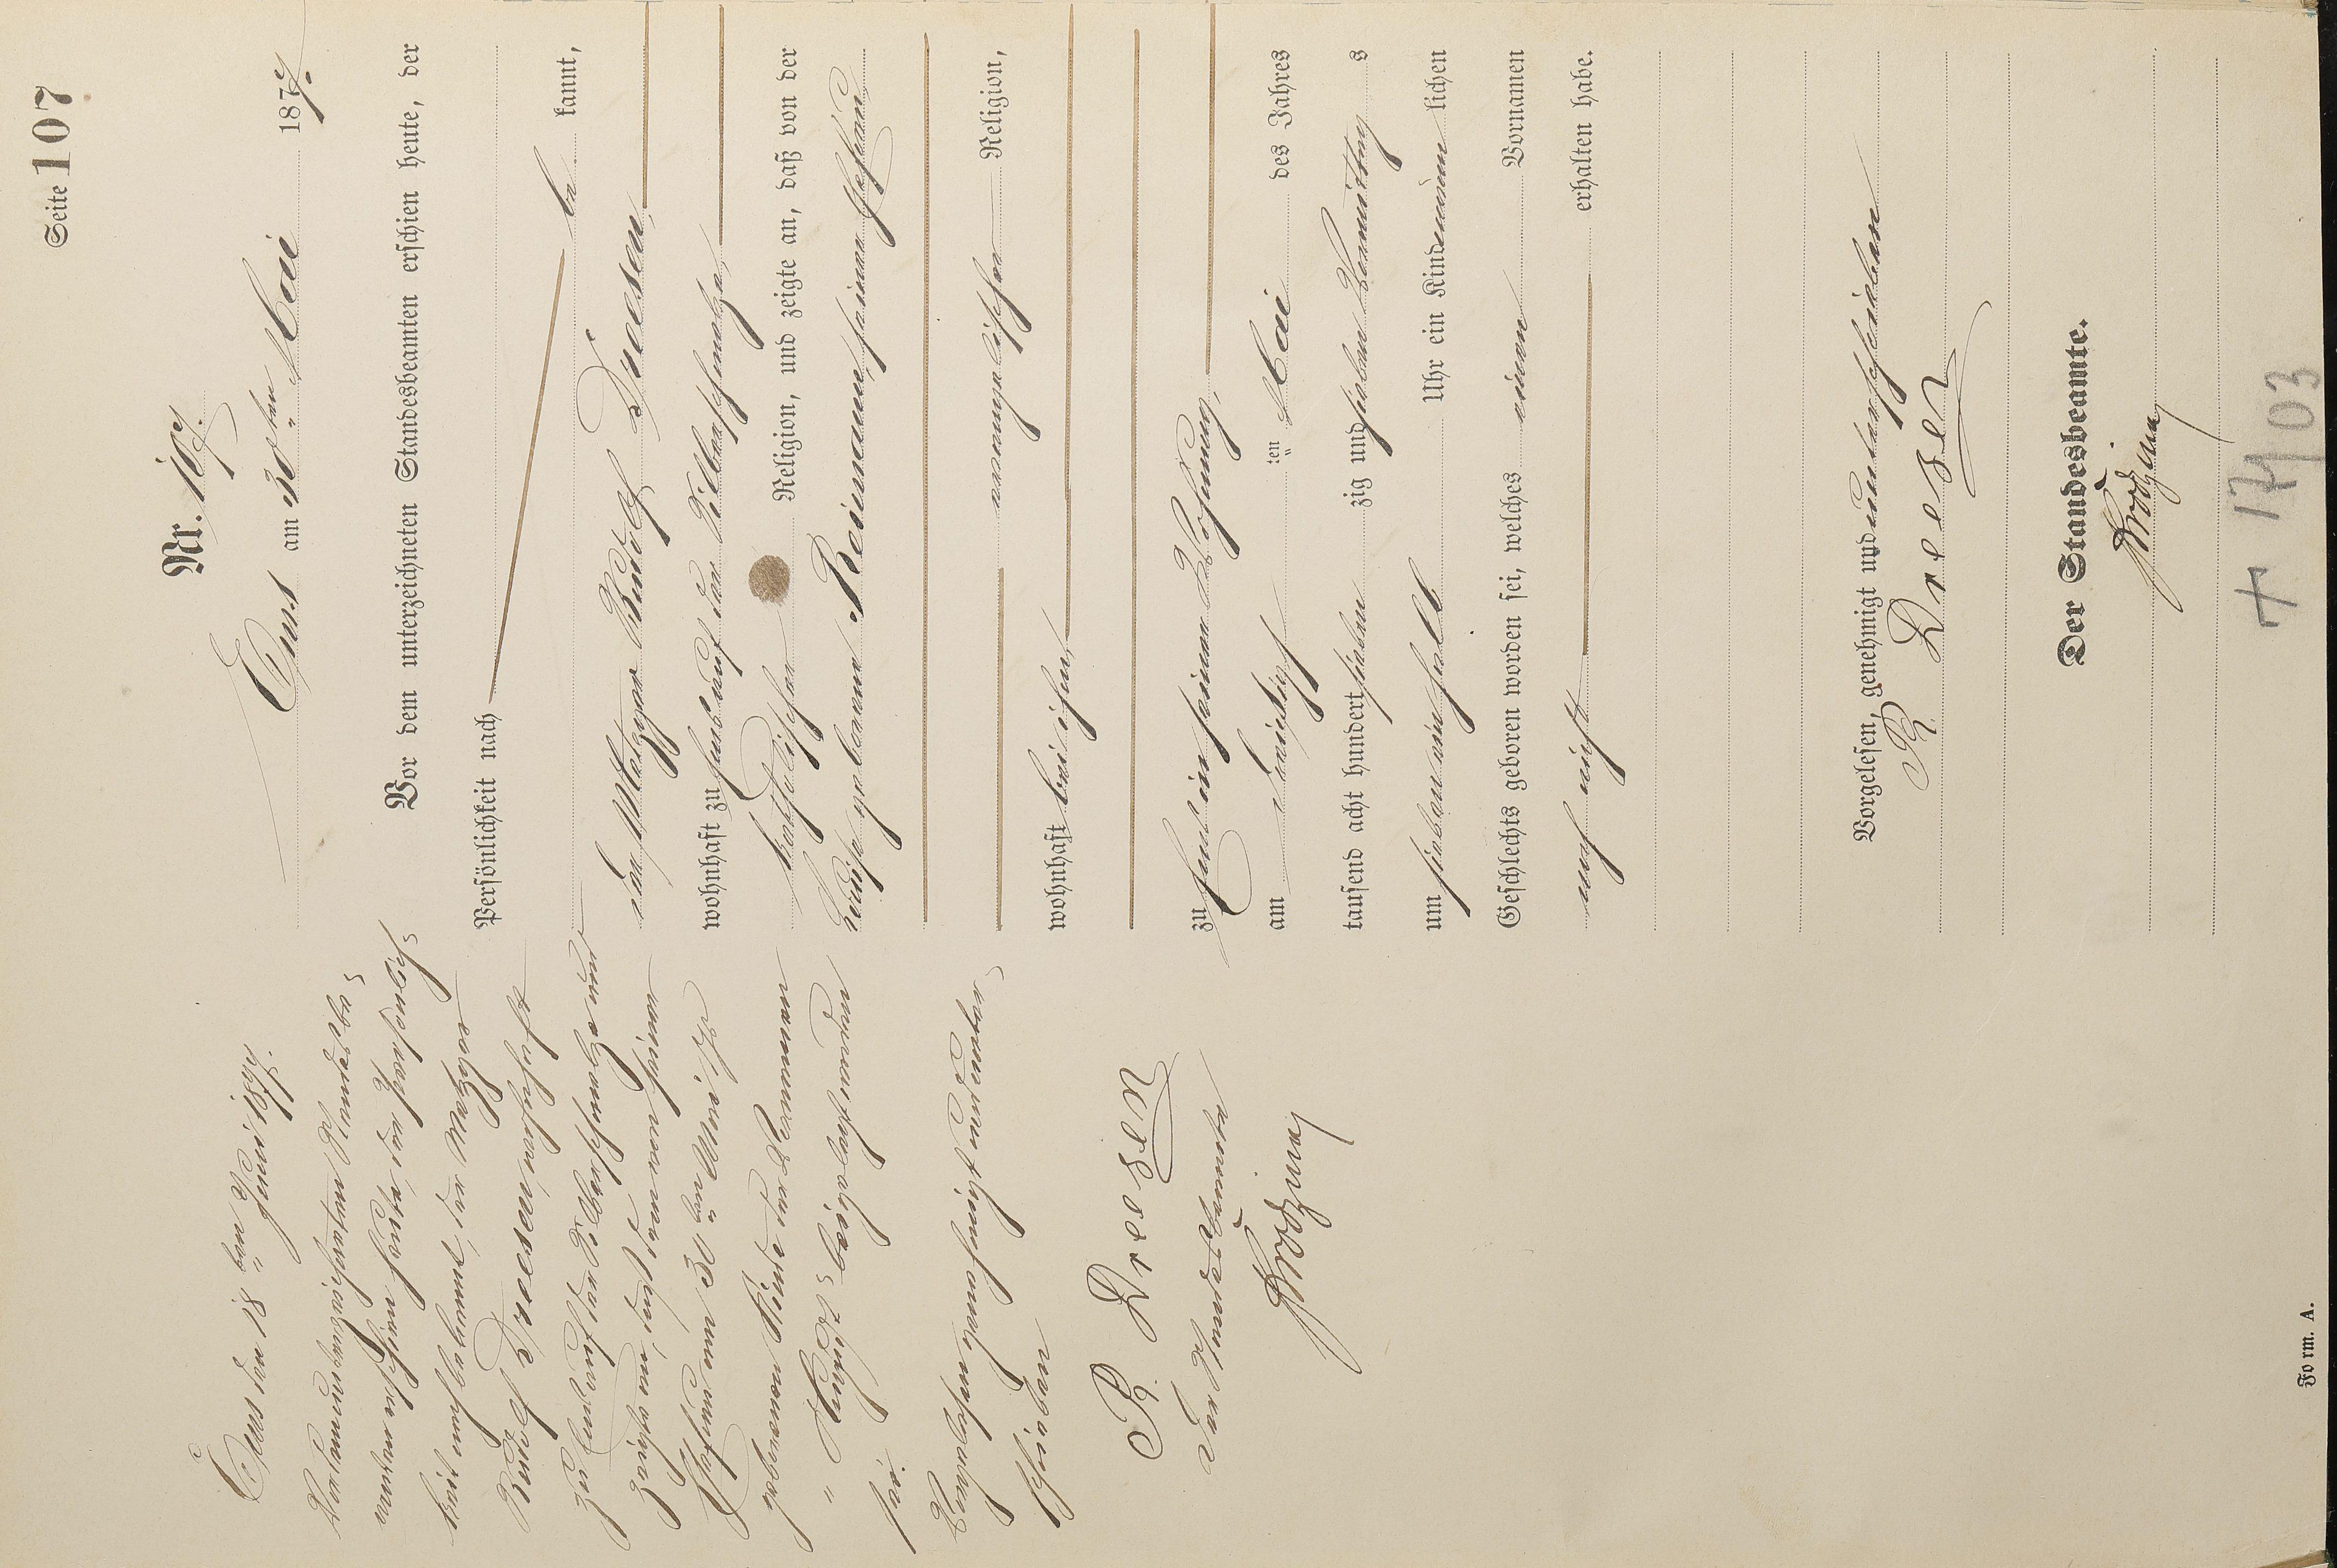 Seite 107
Nr. 107.
Ems am 30 ten Mai 1877.
Vor dem unterzeichneten Standesbeamten erschien heute, der
Persönlichkeit nach
be kannt,
der Metzger Rudolf Dreesen,
wohnhaft zu Ems auf der Silberschmelze,
katholischer Religion, und zeigte an, daß von der
Luise geborene Reimann, seiner Ehefrau,
evangelischer Religion,
wohnhaft bei ihm,
zu Ems in seiner Wohnung,
am dreißigsten Mai des Jahres
tausend acht hundert siebenzig und sieben Vormittags
um sieben ein halb Uhr ein Kind männlichen
Geschlechts geboren worden sei, welches einen Vornamen
noch nicht erhalten habe.
Vorgelesen, genehmigt und unterschrieben
R. Dreesen
Der Standesbeamte.
+ 17/03
Ems den 18 ten Juni 1877.
Vor dem unterzeichneten Standesbe-
amten erschien heute, der Persönlich-
keit nach bekannt, der Metzger
Rudolf Dreesen, wohnhaft
zu Ems auf der Silberschmelze und
zeigte an, daß dem von seiner
Ehefrau am 30 ten Mai
geborenen Kinde der Vornamen
"August" beigelegt worden
sei.
Vorgelesen genehmigt und unter-
schrieben
R. Dreesen
Der Standesbeamte
Form. A.